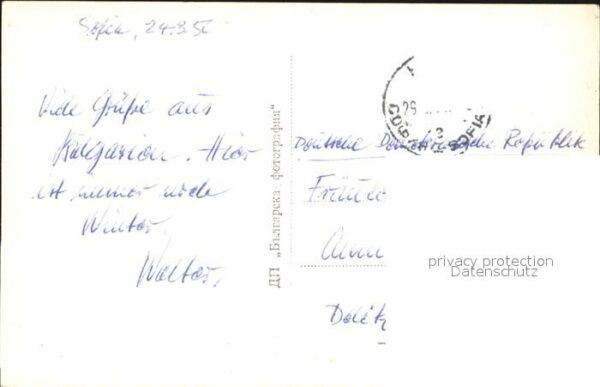 Sofia, 24.3.56
Viele Grüße aus
Bulgarien. Hier
ist immer noch
Winter.
Walter.
ДП „Българска фотография“
26
СОФИЯ
SOFIA
Deutsche Demokratische Republik
Frau
Anna
privacy protection
Datenschutz